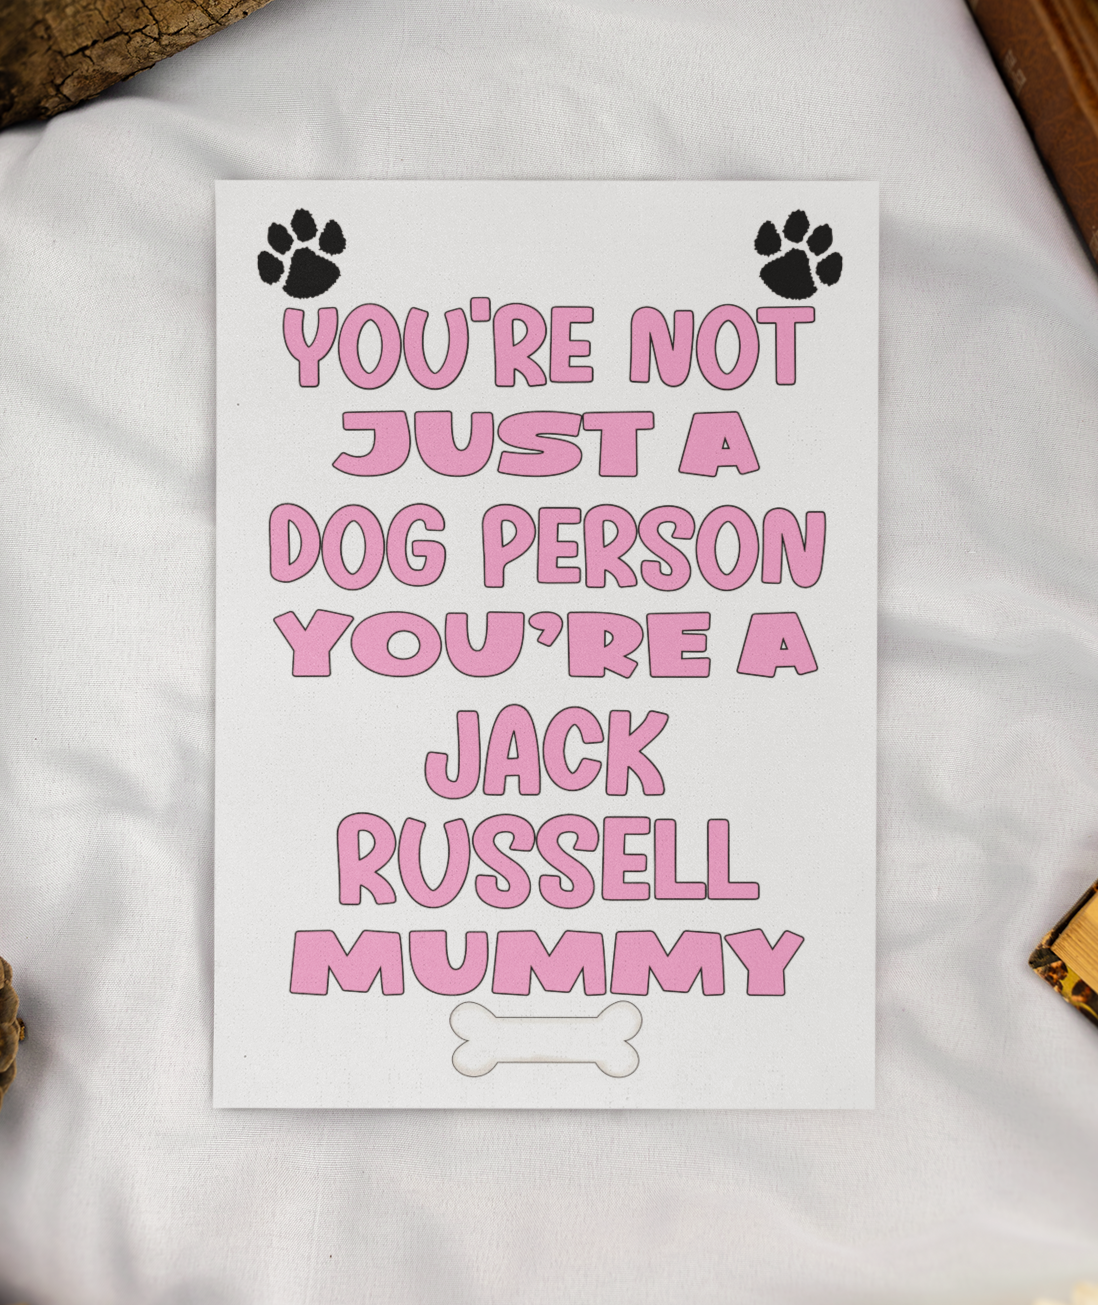 YOU'RE NOT
JUST A
DOG PERSON
YOU’RE A
JACK
RUSSELL
MUMMY